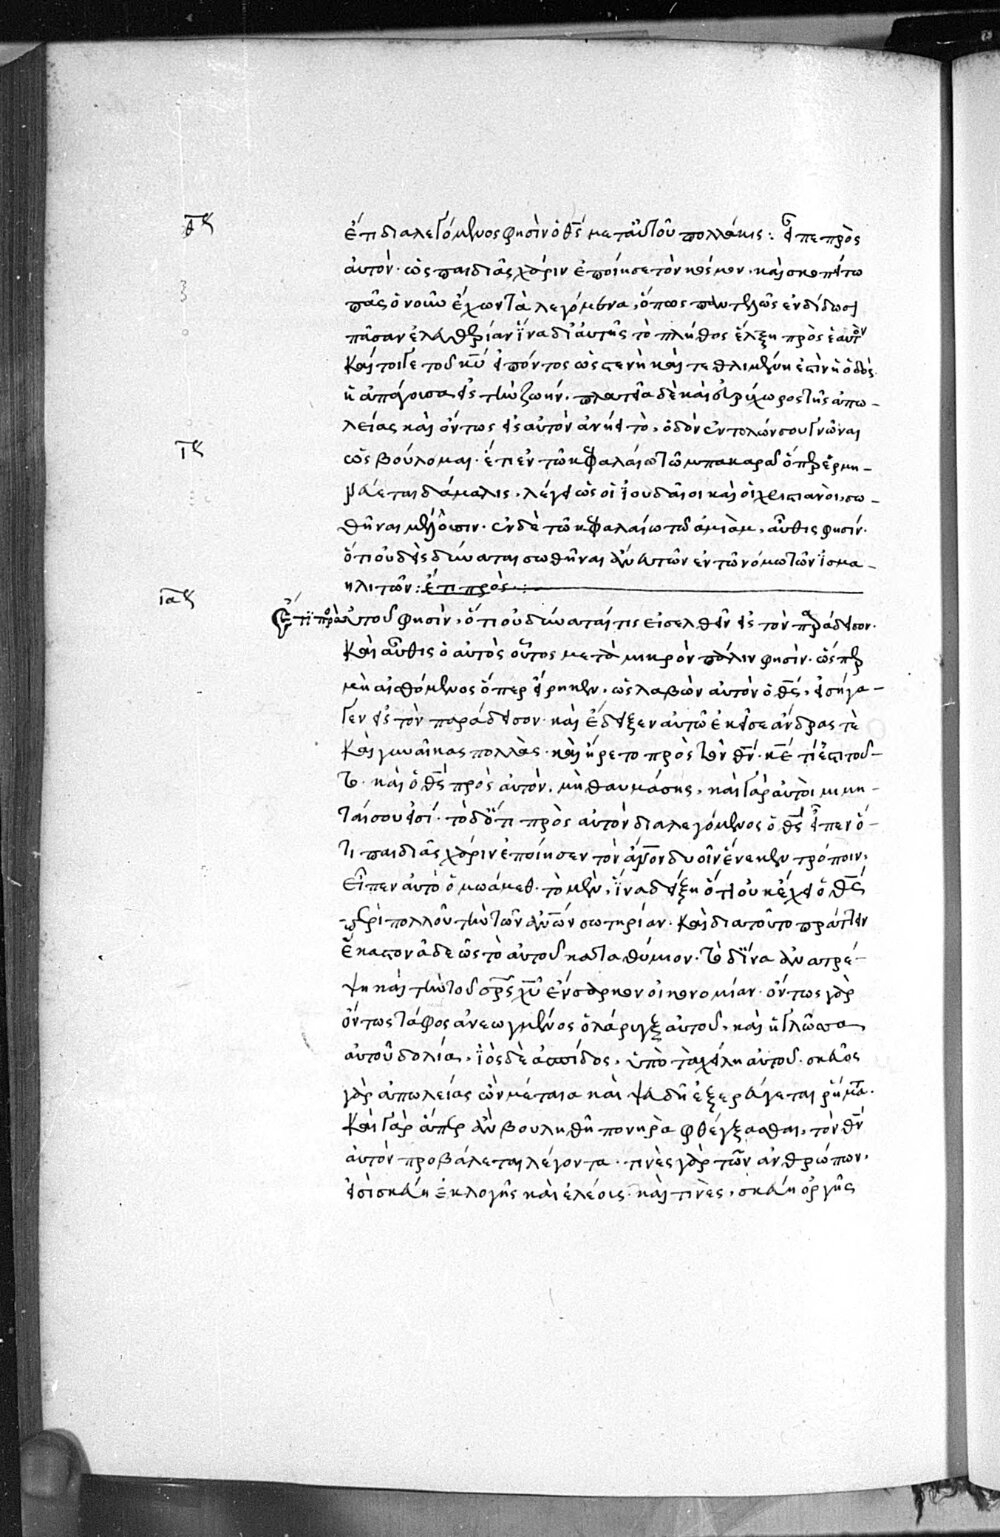 θον
ἔτι διαλεγόμενος φησὶν ὁ θς μετ' αὐτοῦ πολλάκις: εἶπε πρὸς
αὐτὸν· ὡς παιδιᾶς χάριν ἐποίησε τὸν κόσμον· καὶ σκοπείτω
πᾶς ὁ νοῦν ἔχων τὰ λεγόμενα, ὅπως παντελῶς ἐνδίδωσι
πᾶσαν ἐλευθερίαν ἵνα δι' αὐτῆς τὸ πλῆθος ἕλξη πρὸς ἑαυτὸν
Καίτοιγε τοῦ κυ εἰπόντος ὡς στενὴ καὶ τεθλιμμένη ἐστὶν ἡ ὁδὸς
ἡ ἀπάγουσα εἰς τὴν ζωήν. πλατεῖα δὲ καὶ εὐρύχωρος τῆς ἀπω-
λείας καὶ ὄντως εἰς αὐτὸν ἀνήει τὸ, ὁδὸν ἐντολῶν σου γνῶναι
οὐ βούλομαι· ἔτι ἐν τῶ κεφαλαίω τῶ μπακαρα ὅπερ ἑρμη-
νεύεται δάμαλις, λέγει ὡς οἱ ἰουδαῖοι καὶ οἱ χριστιανοὶ, σω-
θῆναι μέλλουσιν. ἐν δὲ τῶ κεφαλαίω τῶ ἀμιὰμ, αὖθις φησίν.
ὅτι οὐδεὶς δύναται σωθῆναι ἄνευ τῶν ἐν τῶ νόμω τῶν ἰσμα-
ηλιτῶν: ἔτι πρὸς
Ἔτι πρὸ αὐτοῦ φησὶν, ὅτι οὐ δύναταί τις εἰσελθεῖν εἰς τὸν παράδεισον.
Καὶ αὖθις ὁ αὐτὸς οὗτος μετὰ μικρὸν πάλιν φησὶν· ὥσπερ
μὴ αἰσθόμενος ὅπερ εἴρηκεν, ὡς λαβὼν αὐτὸν ὁ θς, εἰσήγα-
γεν εἰς τὸν παράδεισον· καὶ ἔδειξεν αὐτῶ ἐκεῖσε ἄνδρας τὲ
Καὶ γυναῖκας πολλάς. καὶ ἤρετο πρὸς τὸν θν. κε τί ἐστι τοῦ-
το. καὶ ὁ θς πρὸς αὐτὸν, μὴ θαυμάσης, καὶ γὰρ αὐτοὶ μιμη-
ταί σου εἰσί· τὸ δ' ὅτι πρὸς αὐτὸν διαλεγόμενος ὁ θς εἶπεν ὅ-
τι παιδιᾶς χάριν ἐποίησεν τὸν κόσμον δυοῖν ἕνεκεν τρόποιν,
εἶπεν αὐτὸ ὁ μωάμεθ· τὸ μὲν, ἵνα δείξη ὅτι οὐκ ἔχει ὁ θς
περὶ πολλοῦ τὴν τῶν ανων σωτηρίαν. καὶ διατοῦτο πράττειν
ἕκαστον ἀδεῶς τὸ αὐτοῦ καταθύμιον. τὸ δ' ἵνα ἀνατρέ-
ψη καὶ τὴν τοῦ σρς χυ ἔνσαρκον οἰκονομίαν· ὄντως γὰρ
ὄντως τάφος ἀνεωγμένος ὁ λάρυγξ αὐτοῦ, καὶ ἡ γλῶσσα
αὐτοῦ δολία, ἰὸς δὲ ἀσπίδος, ὑπὸ τὰ χείλη αὐτοῦ. σκεῦος
γὰρ ἀπωλείας ὢν μάταια καὶ ψευδῆ ἐξερεύγεται ῥήματα.
Καὶ γὰρ ἅπερ ἂν βουληθῆ πονηρὰ φθέγξασθαι, τὸν θν
αὐτὸν προβάλεται λέγοντα. τινὲς γὰρ τῶν ἀνθρώπων,
εἰσὶ σκεύη ἐκλογῆς καὶ ἐλέοις. καὶ τινὲς, σκεύη ὀργῆς